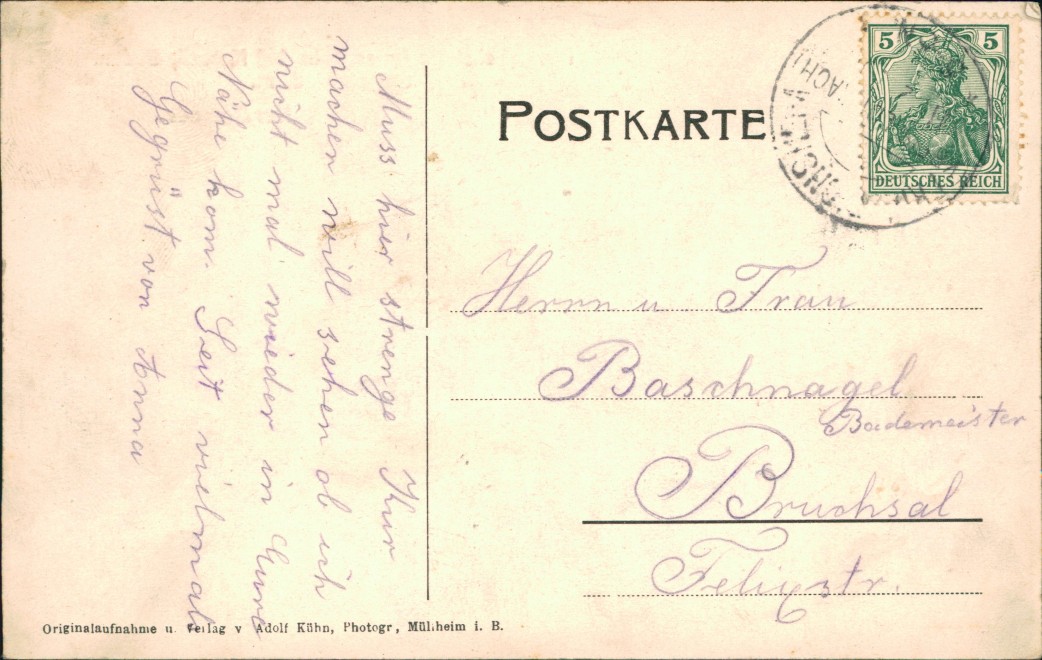 POSTKARTE
5 5
DEUTSCHES REICH
Muss hier strenge Kur
machen will sehen ob ich
nicht mal wieder in Eure
Nähe kom. Seit vielmal
Gegrüst von Anna
Herrn u Frau
Baschnagel
Bademeister
Bruchsal
Felixstr.
Originalaufnahme u. Verlag v Adolf Kühn, Photogr, Müllheim i. B.